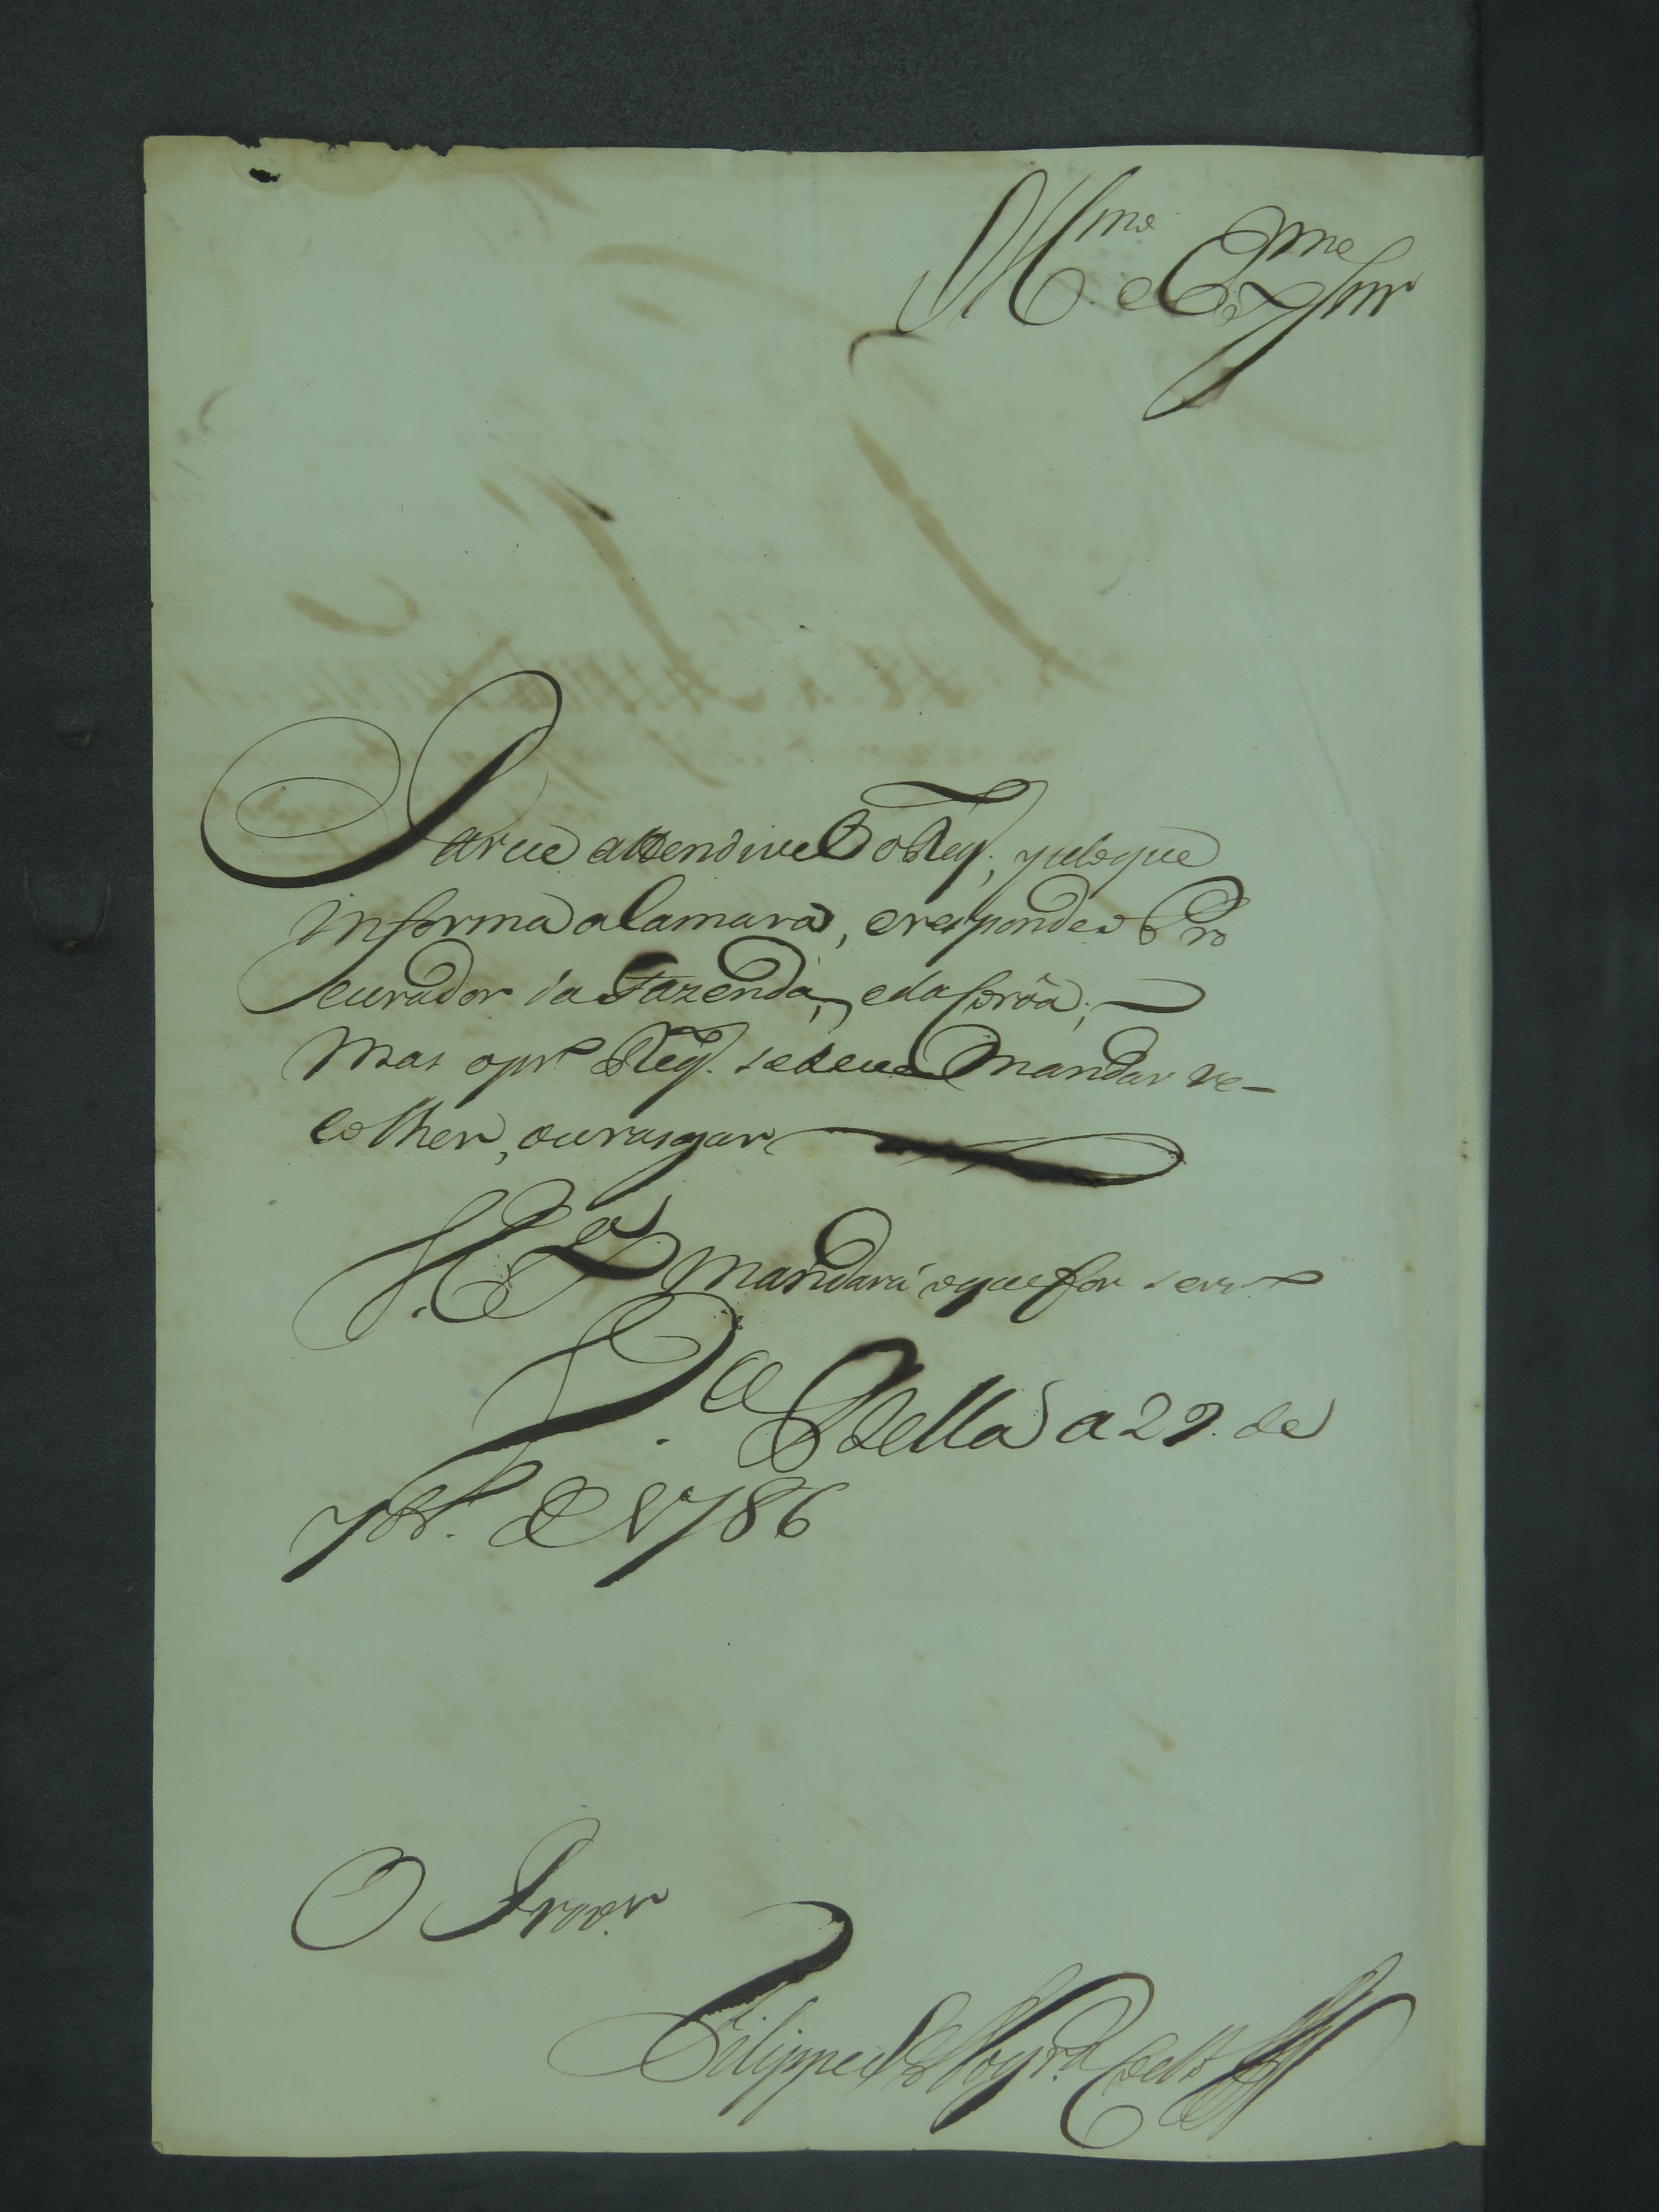 Illmo. e Exmo. Snr
Parece attendivel o Req., pelo que
informa a Camara, e responde o Pro
curador da Fazenda, e da Coroa;
mas o pr.e Req. se deve mandar re-
colher, ou rasgar
V. Exa. mandará o que for serv.o
Va. Bella a 29. de
7br.o de 1786
O Prov.or
Filippe Joze Nogr.a Coelho